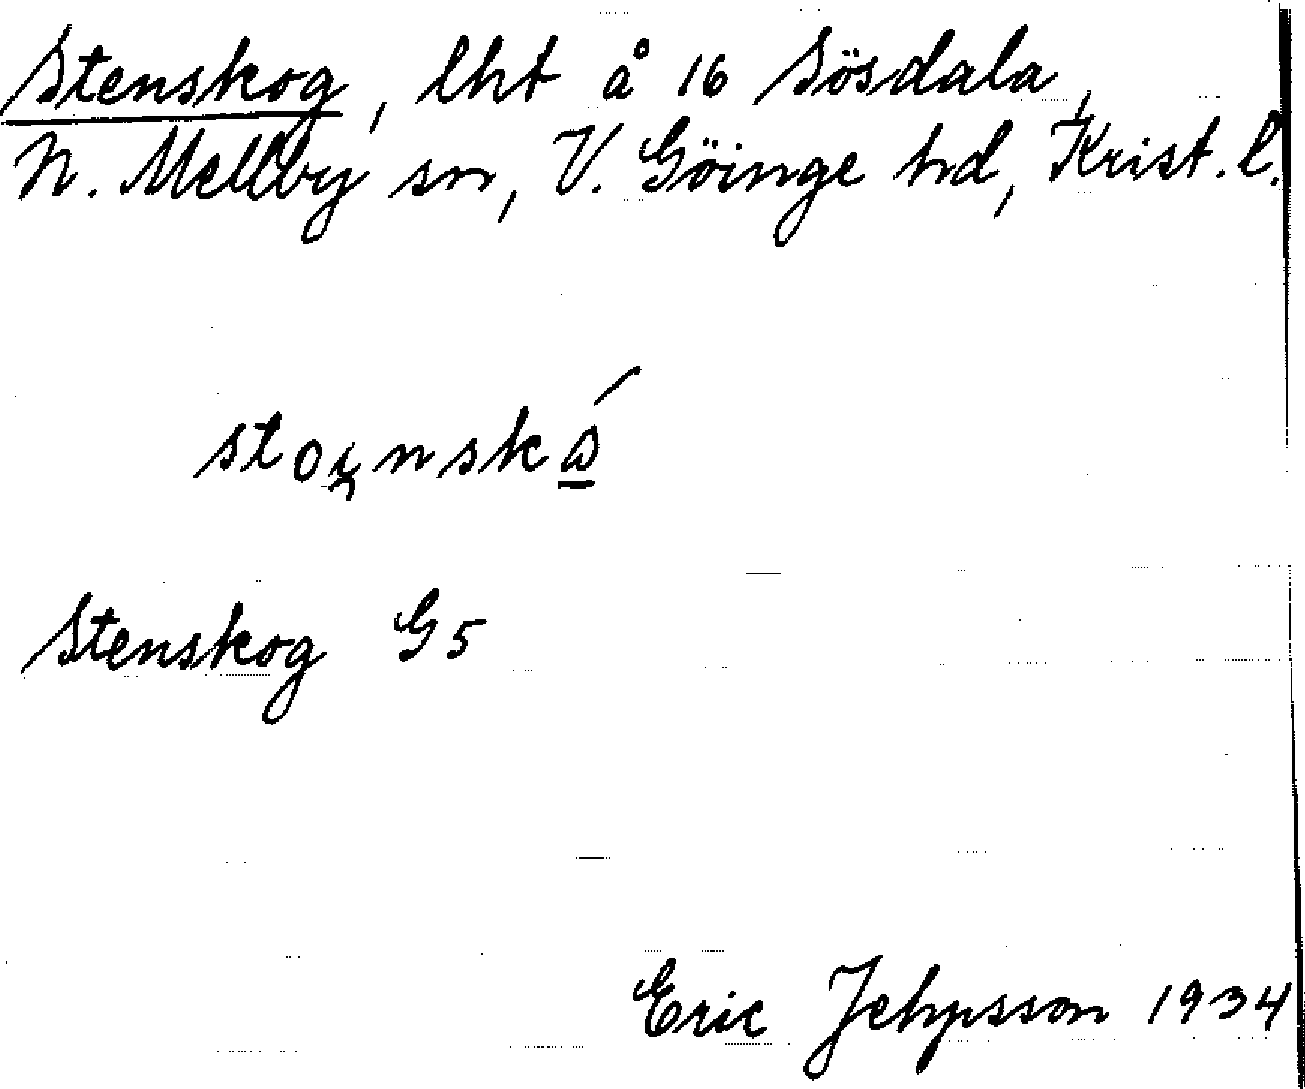 Stenskog, lht å 16 Sösdala,
N. Mellby sn, V. Göinge hd, Krist. l.
Stenskog G5
Eric Jehpsson 1934